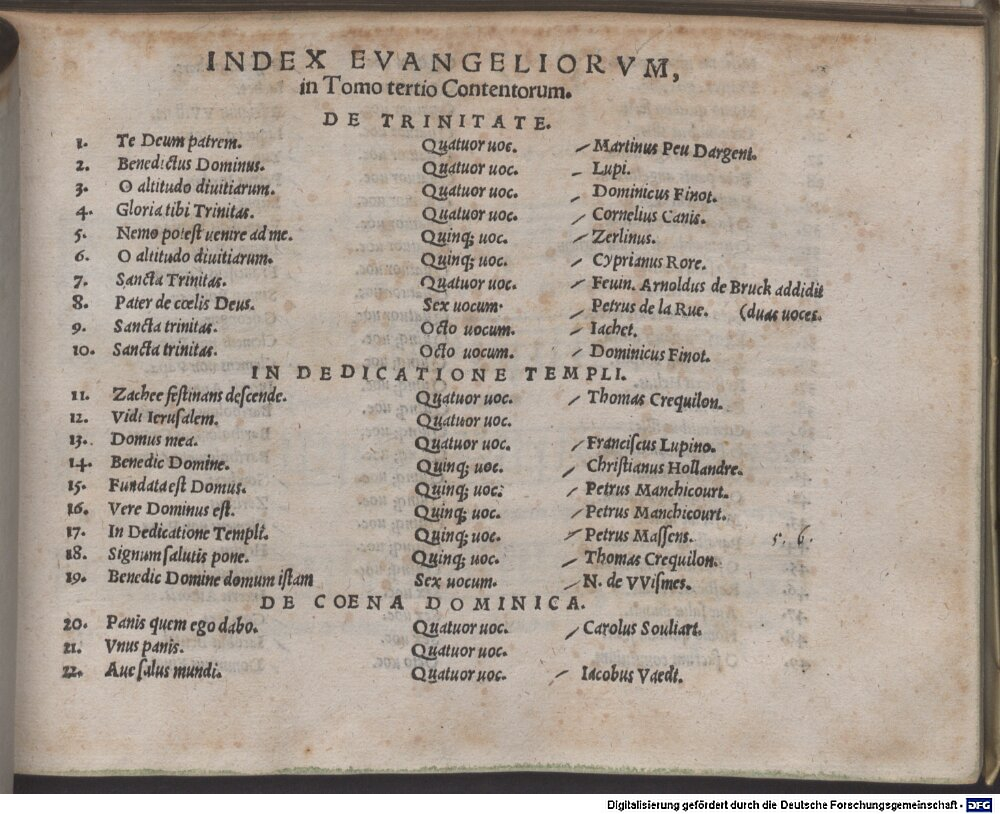 INDEX EVANGELIORVM,
in Tomo tertio Contentorum.
DE TRINITATE.
1. Te Deum patrem. Quatuor uoc. Martinus Peu Dargent.
2. Benedictus Dominus. Quatuor uoc. Lupi.
3. O altitudo diuitiarum. Quatuor uoc. Dominicus Finot.
4. Gloria tibi Trinitas. Quatuor uoc. Cornelius Canis.
5. Nemo potest uenire ad me. Quinq; uoc. Zerlinus.
6. O altitudo diuitiarum. Quinq; uoc. Cyprianus Rore.
7. Sancta Trinitas. Quatuor uoc. Feuin. Arnoldus de Bruck addidit
8. Pater de cœlis Deus. Sex uocum. Petrus de la Rue. (duas uoces.
9. Sancta trinitas. Octo uocum. Iachet.
10. Sancta trinitas. Octo uocum. Dominicus Finot.
IN DEDICATIONE TEMPLI.
11. Zachee festinans descende. Quatuor uoc. Thomas Crequilon.
12. Vidi Ierusalem. Quatuor uoc.
13. Domus mea. Quatuor uoc. Franciscus Lupino.
14. Benedic Domine. Quinq; uoc. Christianus Hollandre.
15. Fundata est Domus. Quinq; uoc. Petrus Manchicourt.
16. Vere Dominus est. Quinq; uoc. Petrus Manchicourt.
17. In Dedicatione Templi. Quinq; uoc. Petrus Massens. 5. 6.
18. Signum salutis pone. Quinq; uoc. Thomas Crequilon.
19. Benedic Domine domum istam Sex uocum. N. de VVismes.
DE COENA DOMINICA.
20. Panis quem ego dabo. Quatuor uoc. Carolus Souliart.
21. Vnus panis. Quatuor uoc.
22. Aue salus mundi. Quatuor uoc. Iacobus Vaedt.
Digitalisierung gefördert durch die Deutsche Forschungsgemeinschaft - DFG